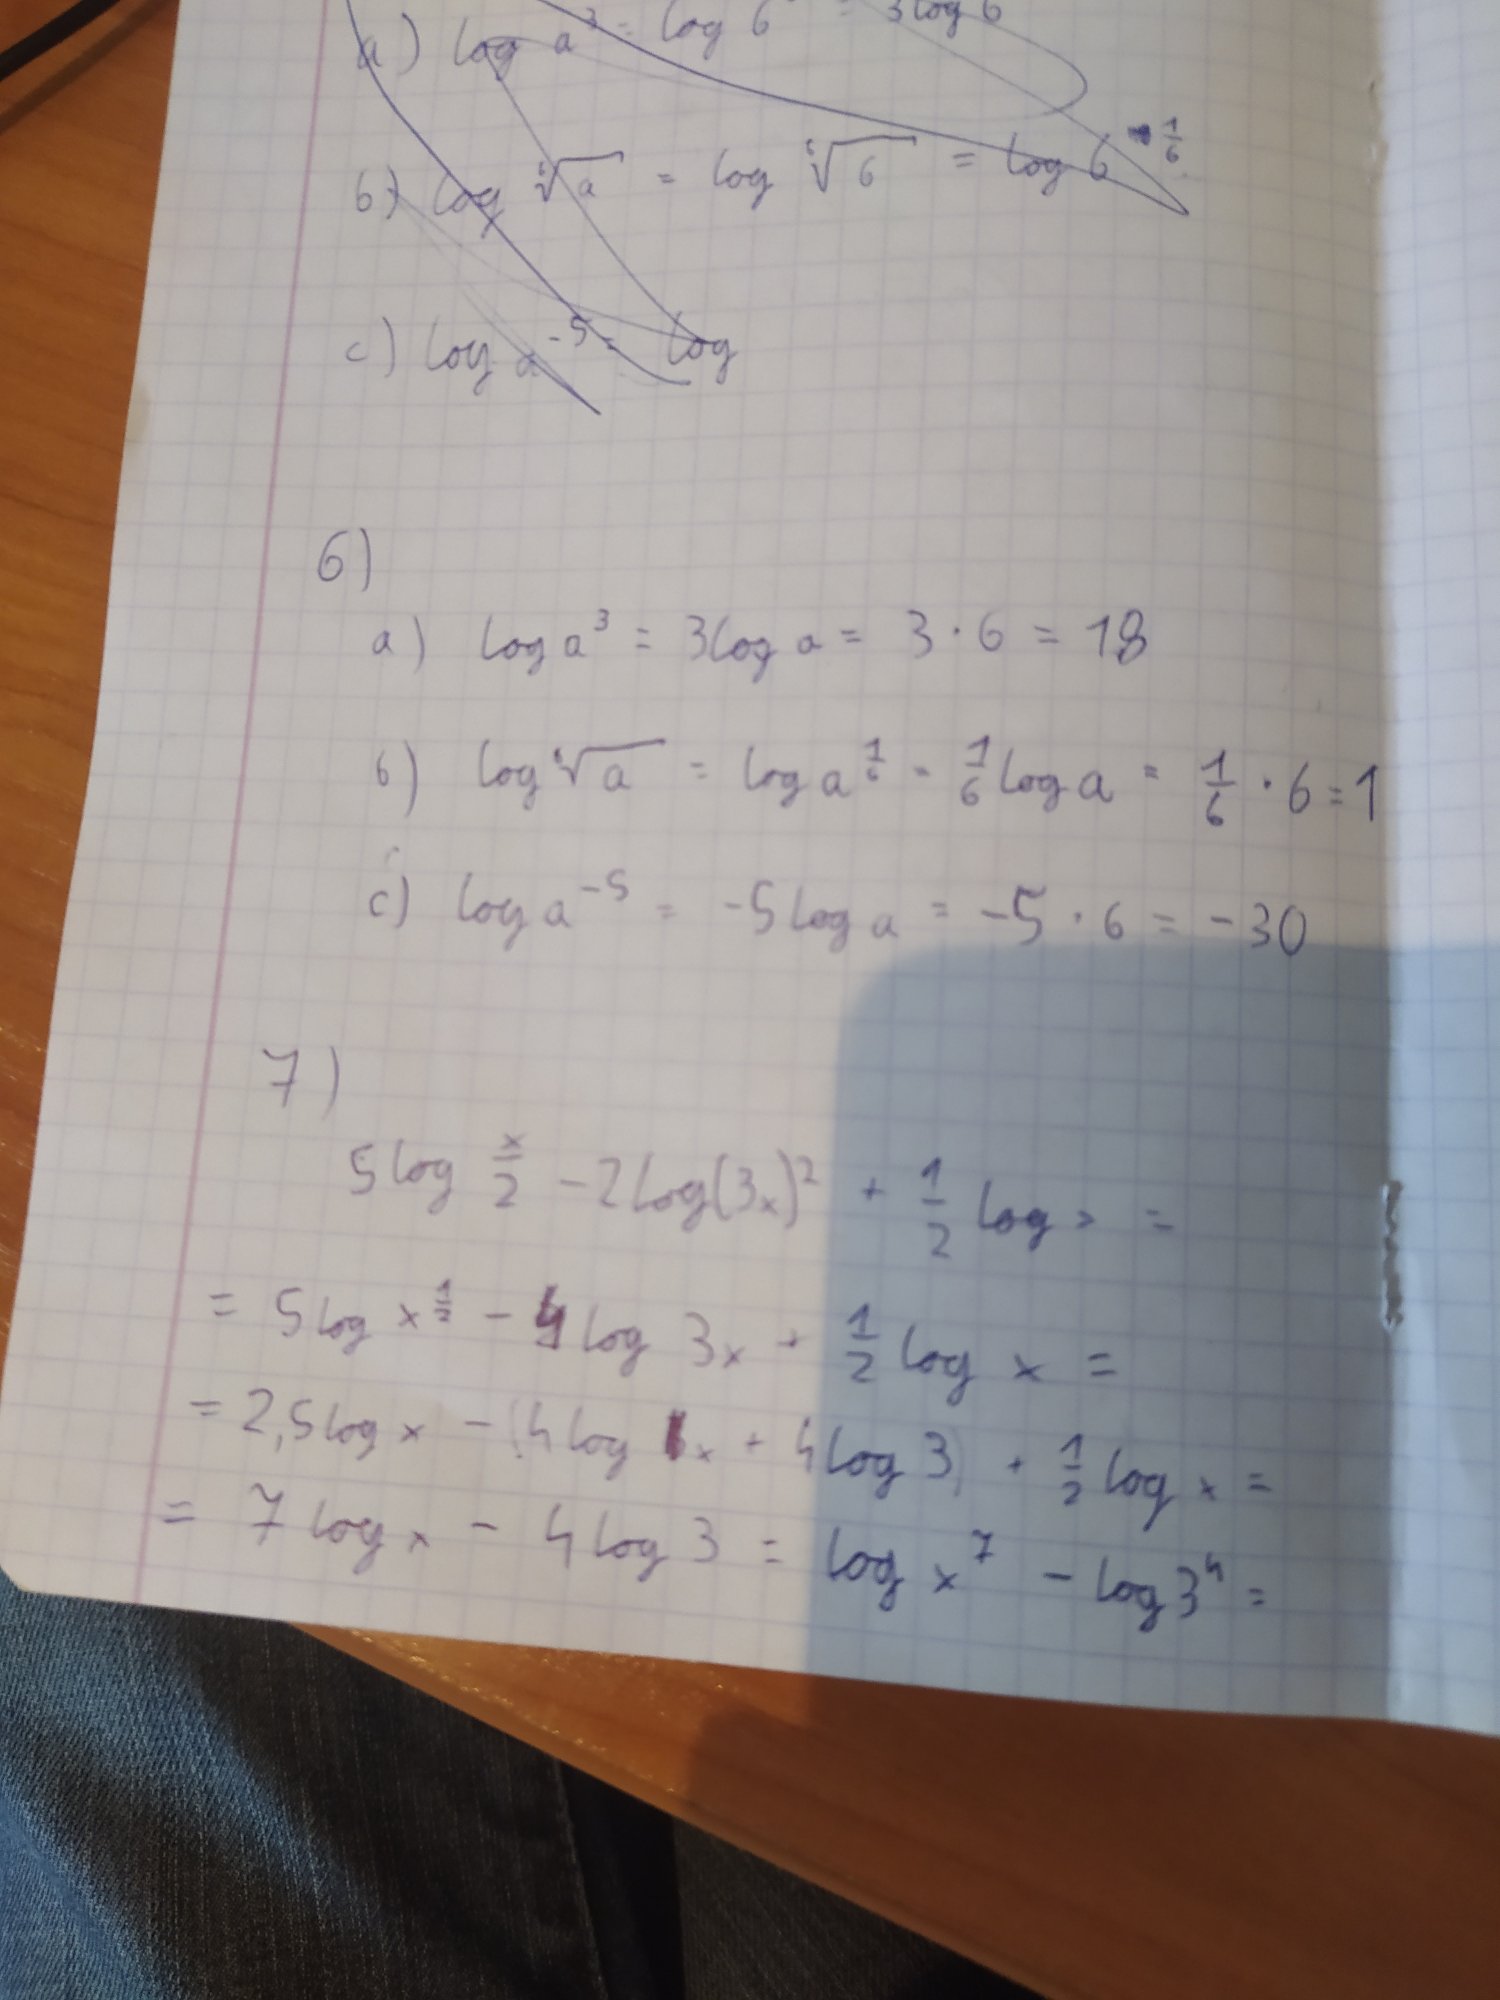 a) log a³ = log 6 = 3log 6
b) log ⁶√a = log ⁶√6 = log 6 ^1/6
c) log a⁻⁵ = log
6)
a) log a³ = 3log a = 3 · 6 = 18
b) log ⁶√a = log a^1/6 = 1/6 log a = 1/6 · 6 = 1
c) log a⁻⁵ = -5 log a = -5 · 6 = -30
7)
5 log x/2 - 2 log(3x)² + 1/2 log x =
= 5 log x^1/2 - 4 log 3x + 1/2 log x =
= 2,5 log x - (4 log x + 4 log 3) + 1/2 log x =
= 7 log x - 4 log 3 = log x⁷ - log 3⁴ =